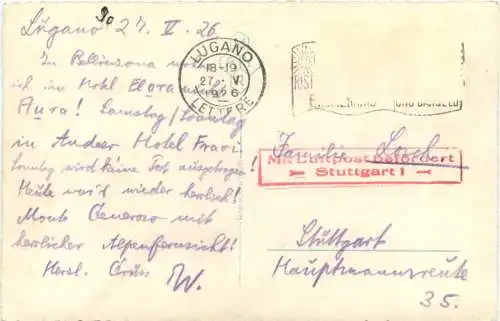 Lugano 27. V. 26
In Bellinzona
ich im Hotel
Aura! Samstag/Sonntag
in Andeer Hotel Fravi
Sonntag wird keine Post ausgetragen!
Heute war's wieder herrlich!
Monte Generoso mit
herrlicher Alpenfernsicht!
Herzl. Grüss
W.
LUGANO
18-19
27. V.
1926
LETTERE
Familie
Mit Luftpost befördert
Stuttgart 1
Stuttgart
Hauptmannsreute
35.